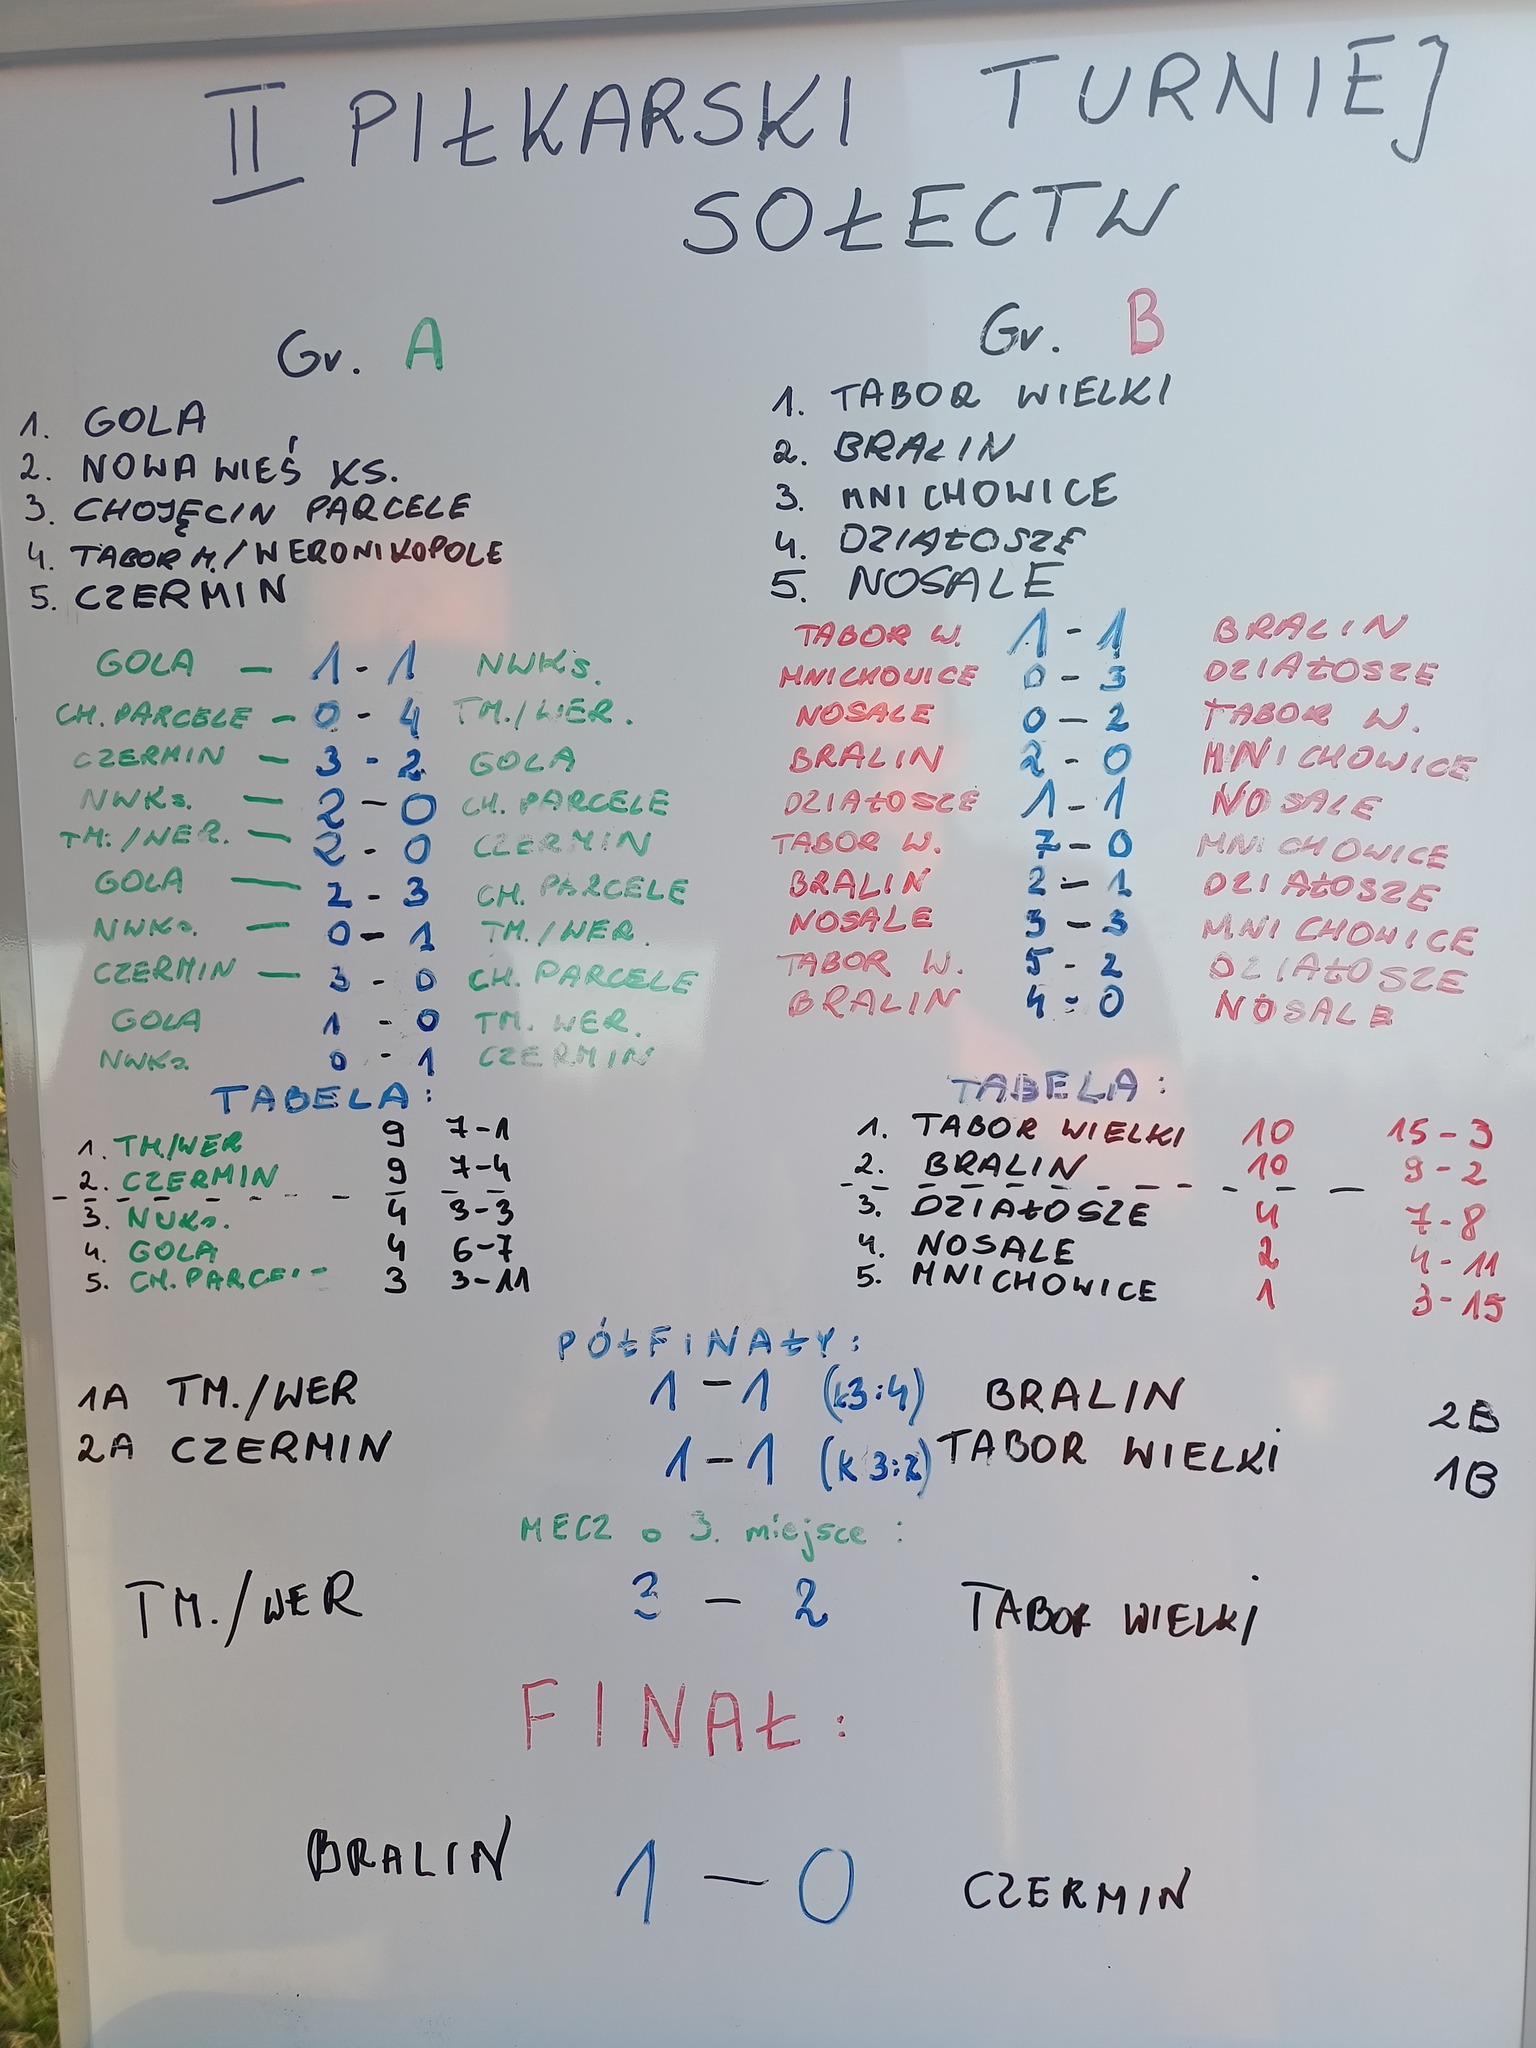 II PIŁKARSKI TURNIEJ
SOŁECTW
Gr. A
1. GOLA
2. NOWA WIEŚ KS.
3. CHOJĘCIN PARCELE
4. TABOR M./WERONIKOPOLE
5. CZERMIN
GOLA — 1-1 NWKs.
CH. PARCELE - 0-4 TM./WER.
CZERMIN — 3-2 GOLA
NWKs. — 2-0 CH. PARCELE
TM./WER. — 2-0 CZERMIN
GOLA — 2-3 CH. PARCELE
NWKs. — 0-1 TM./WER.
CZERMIN — 3-0 CH. PARCELE
GOLA 1-0 TM. WER.
NWKs. 0-1 CZERMIN
TABELA:
1. TM/WER 9 7-1
2. CZERMIN 9 7-4
3. NWKs. 4 3-3
4. GOLA 4 6-7
5. CH. PARCELE 3 3-11
Gr. B
1. TABOR WIELKI
2. BRALIN
3. MNICHOWICE
4. DZIAŁOSZE
5. NOSALE
TABOR W. 1-1 BRALIN
MNICHOWICE 0-3 DZIAŁOSZE
NOSALE 0-2 TABOR W.
BRALIN 2-0 MNICHOWICE
DZIAŁOSZE 1-1 NOSALE
TABOR W. 7-0 MNICHOWICE
BRALIN 2-1 DZIAŁOSZE
NOSALE 3-3 MNICHOWICE
TABOR W. 5-2 DZIAŁOSZE
BRALIN 4-0 NOSALE
TABELA:
1. TABOR WIELKI 10 15-3
2. BRALIN 10 9-2
3. DZIAŁOSZE 4 7-8
4. NOSALE 2 4-11
5. MNICHOWICE 1 3-15
PÓŁFINAŁY:
1A TM./WER 1-1 (k3:4) BRALIN 2B
2A CZERMIN 1-1 (k 3:2) TABOR WIELKI 1B
MECZ o 3. miejsce:
TM./WER 3-2 TABOR WIELKI
FINAŁ:
BRALIN 1-0 CZERMIN